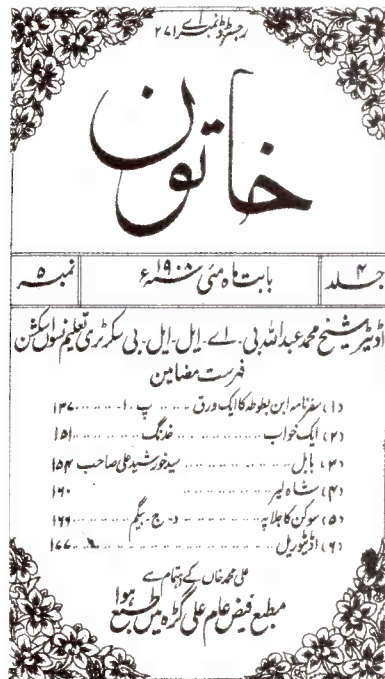 رجسٹرڈ نمبر اے ۲۷۱
خاتون
جلد ۴
بابت ماہ مئی ۱۹۰۸ء
نمبر ۵
اڈیٹر شیخ محمد عبداللہ بی - اے - ایل - ایل - بی سکرٹری تعلیم نسواں سکشن
فہرست مضامین
(۱) سفرنامہ ابن بطوطہ کا ایک ورق ..... پ - ا - ..... ۱۴۷
(۲) ایک خواب ..... خدنگ ..... ۱۵۱
(۳) بابل ..... سید خورشید علی صاحب ۱۵۴
(۴) شاہ لیر ..... ۱۶۰
(۵) سوکن کا جلاپہ ..... د - ج - بیگم ..... ۱۶۶
(۶) اڈیٹوریل ..... ۱۷۷
علی محمد خاں کے اہتمام سے
مطبع فیض عام علی گڑھ میں طبع ہوا